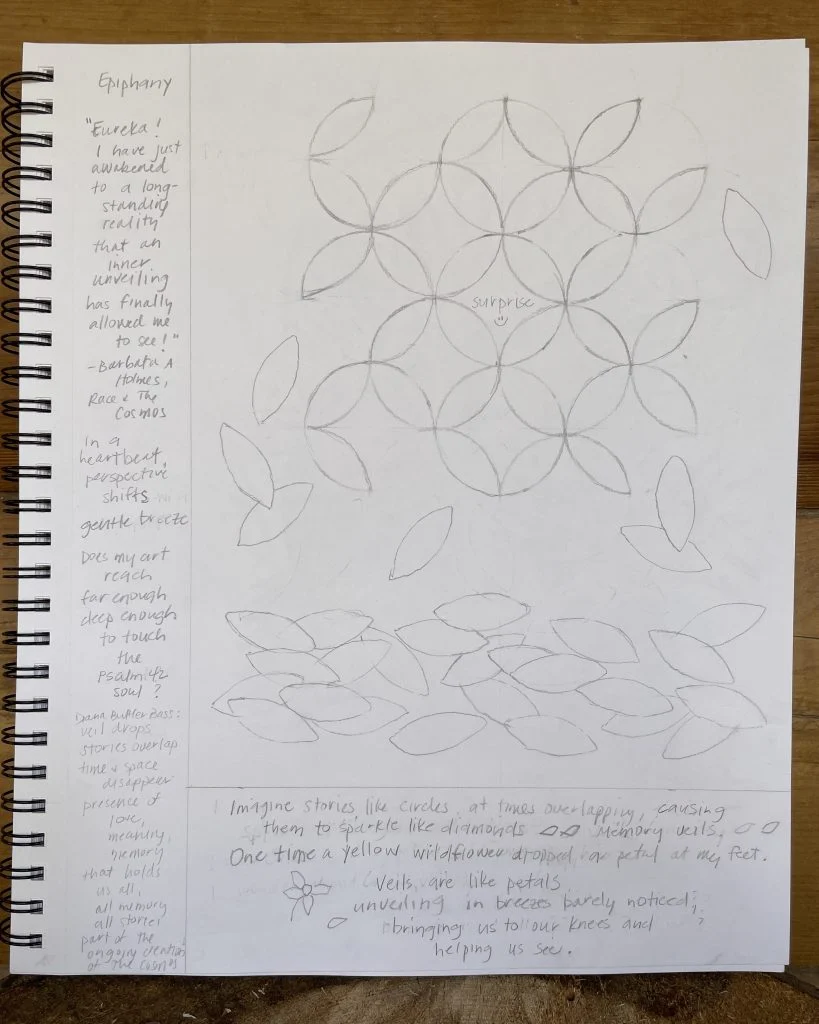 Epiphany
"Eureka!
I have just
awakened
to a long-
standing
reality
that an
inner
unveiling
has finally
allowed me
to see!"
-Barbara A
Holmes,
Race & The
Cosmos
In a
heartbeat,
perspective
shifts
gentle breeze
Does my art
reach
far enough
deep enough
to touch
the
psalm 42
soul?
Diana Butler Bass:
veil drops
stories overlap
time & space
disappear
presence of
love,
meaning,
memory
that holds
us all,
all memory
all stories
part of the
ongoing creation
of the cosmos
surprise
Imagine stories like circles, at times overlapping, causing
them to sparkle like diamonds memory veils.
One time a yellow wildflower dropped a petal at my feet.
Veils are like petals
unveiling in breezes barely noticed,
bringing us to our knees and
helping us see.